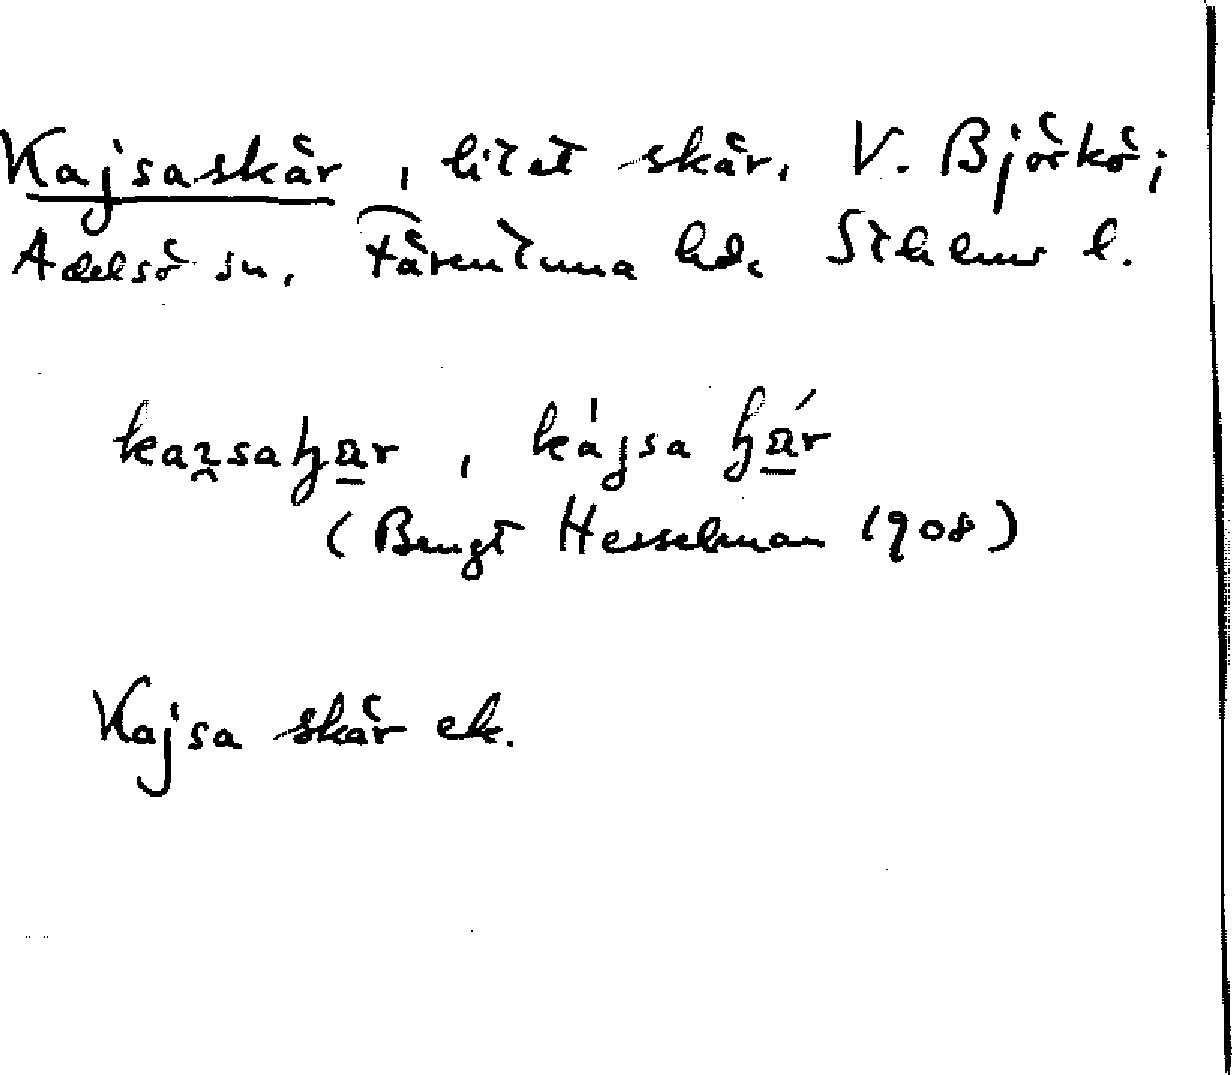 Kajsaskär, litet skär, V. Björkö;
Adelsö sn, Färentuna hd. Sthlms l.
, kájsa
(Bengt Hesselman 1908)
Kajsa skär ek.